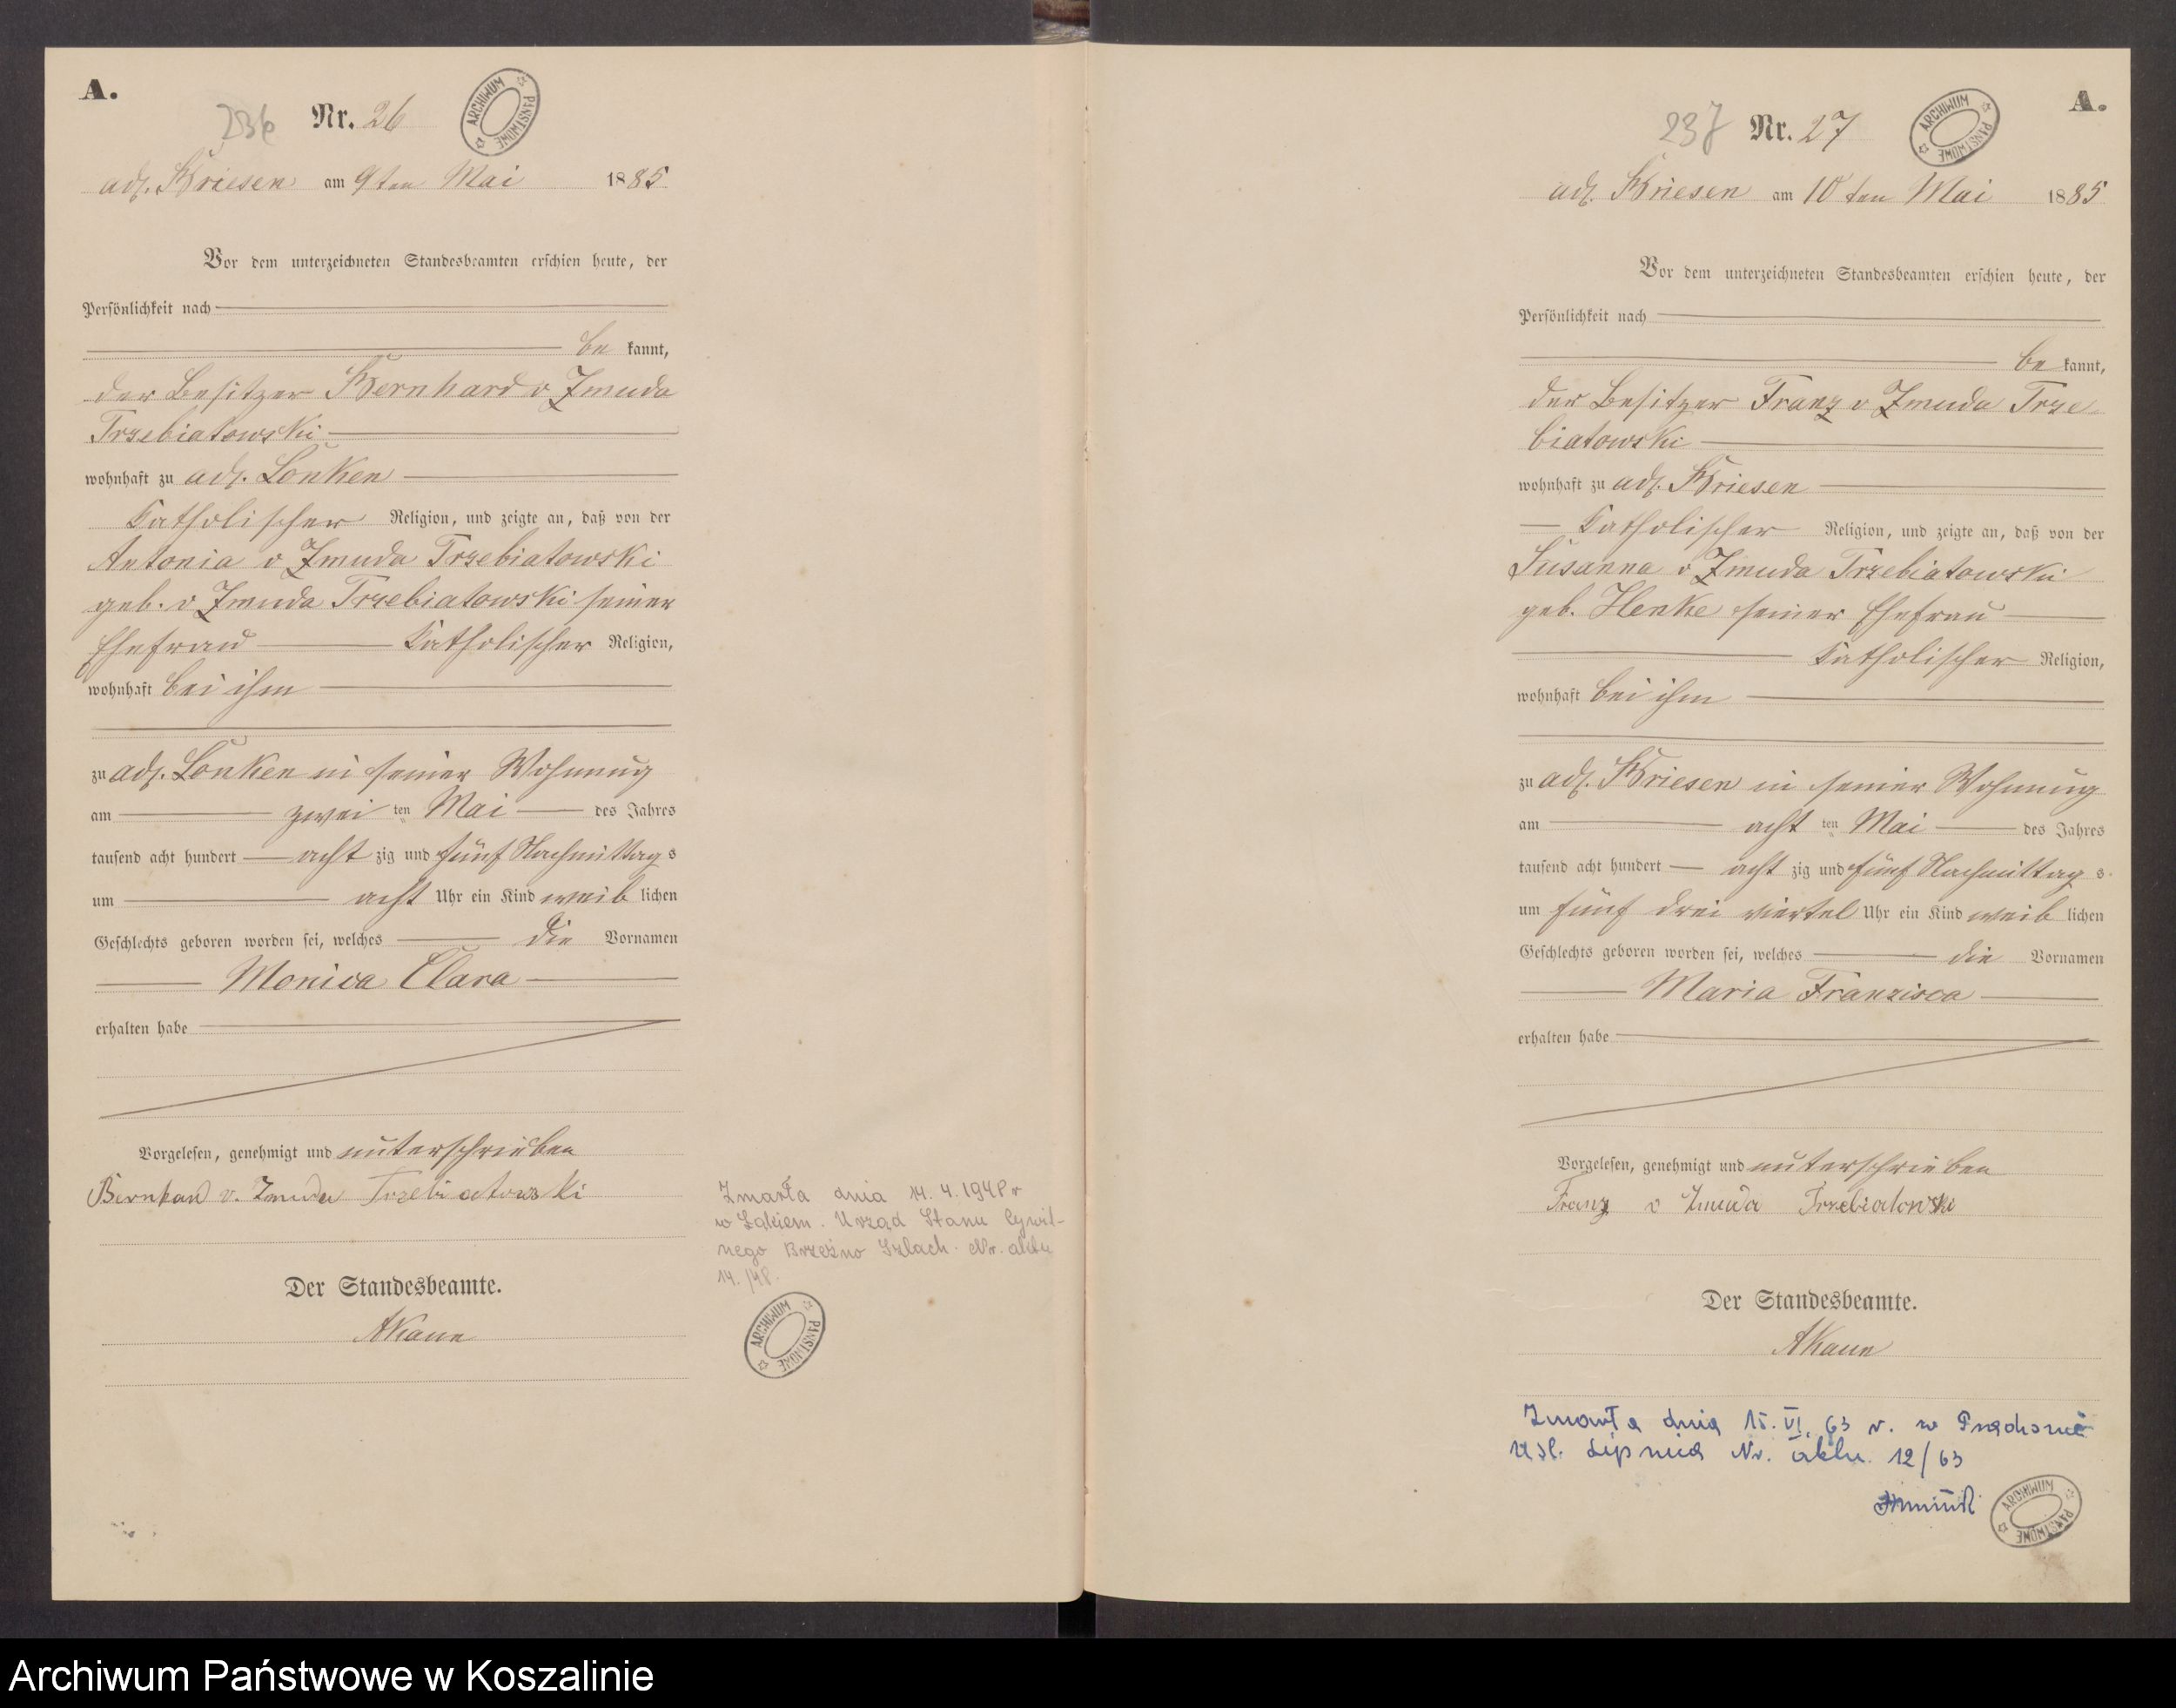 A.
236 Nr. 26
ARCHIWUM PAŃSTWOWE
adl. Briesen am 9ten Mai 1885
Vor dem unterzeichneten Standesbeamten erschien heute, der
Persönlichkeit nach
be kannt,
der Besitzer Bernhard v Zmuda
Trzebiatowski
wohnhaft zu adl. Lonken
Katholischer Religion, und zeigte an, daß von der
Antonia v Zmuda Trzebiatowski
geb. v Zmuda Trzebiatowski seiner
Ehefrau Katholischer Religion,
wohnhaft bei ihm
zu adl. Lonken in seiner Wohnung
am zwei ten Mai des Jahres
tausend acht hundert acht zig und fünf Nachmittag s
um acht Uhr ein Kind weib lichen
Geschlechts geboren worden sei, welches die Vornamen
Monica Clara
erhalten habe
Vorgelesen, genehmigt und unterschrieben
Bernhard v. Zmuda Trzebiatowski
Der Standesbeamte.
AKaun
Zmarła dnia 14. 4. 1948 r
w Łąkiem. Urząd Stanu Cywil-
nego Brzeźno Szlach. Nr. aktu
14./48.
ARCHIWUM PAŃSTWOWE
A.
237 Nr. 27
ARCHIWUM PAŃSTWOWE
adl. Briesen am 10ten Mai 1885
Vor dem unterzeichneten Standesbeamten erschien heute, der
Persönlichkeit nach
be kannt,
der Besitzer Franz v Zmuda Trze-
biatowski
wohnhaft zu adl. Briesen
Katholischer Religion, und zeigte an, daß von der
Susanna v Zmuda Trzebiatowski
geb. Henke seiner Ehefrau
Katholischer Religion,
wohnhaft bei ihm
zu adl. Briesen in seiner Wohnung
am acht ten Mai des Jahres
tausend acht hundert acht zig und fünf Nachmittag s
um fünf drei viertel Uhr ein Kind weib lichen
Geschlechts geboren worden sei, welches die Vornamen
Maria Franzisca
erhalten habe
Vorgelesen, genehmigt und unterschrieben
Franz v Zmuda Trzebiatowski
Der Standesbeamte.
AKaun
Zmarła dnia 15. VI. 63 r. w Prądzonie
USC. Lipnica Nr. aktu. 12/63
ARCHIWUM PAŃSTWOWE
Archiwum Państwowe w Koszalinie